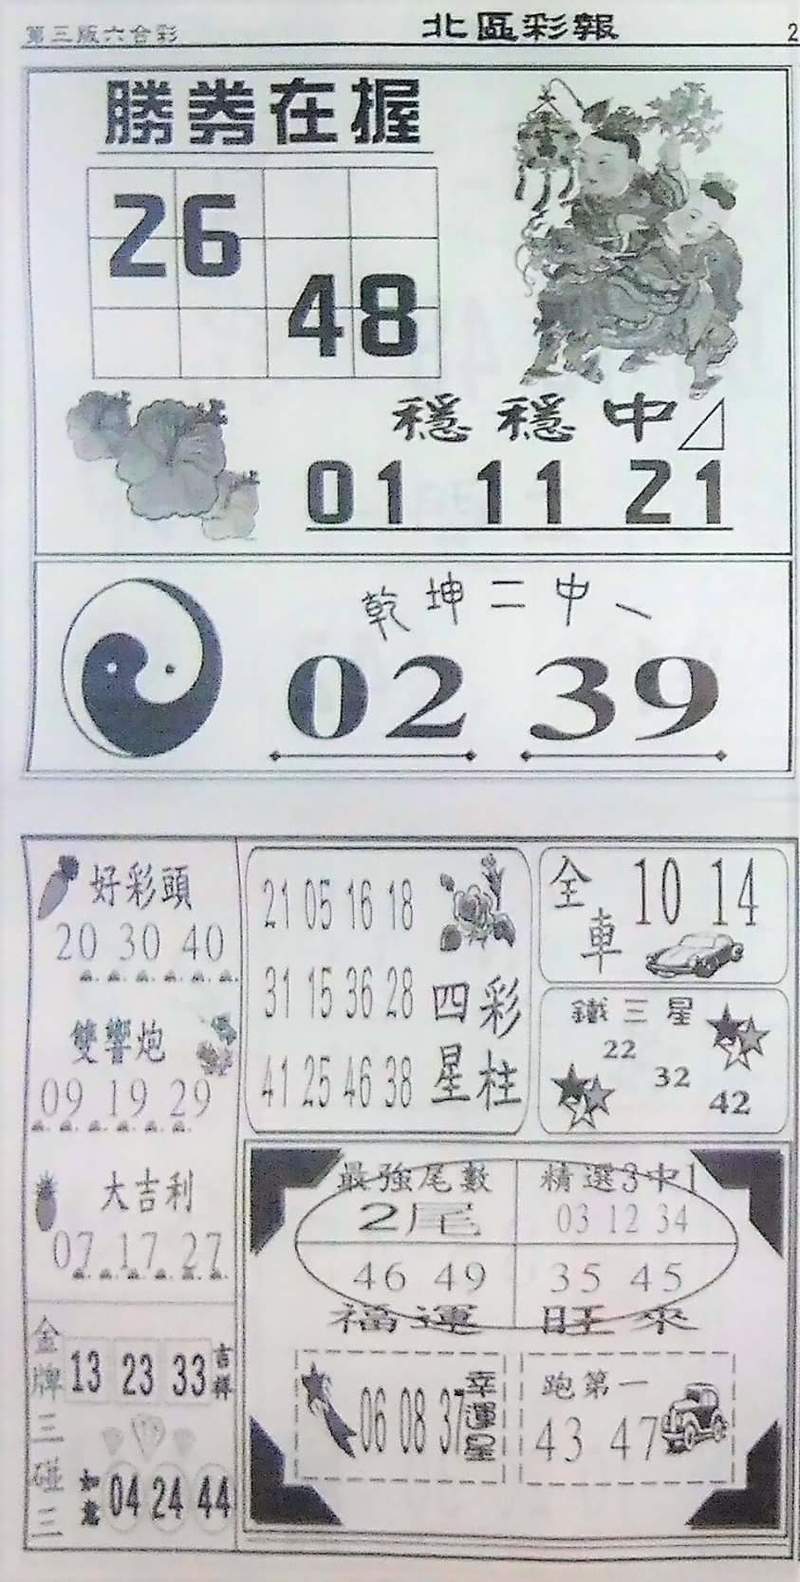 第三版六合彩 北區彩報 2
勝券在握
26
48
穩穩中
01 11 21
乾坤二中一
02 39
好彩頭
20 30 40
雙響炮
09 19 29
大吉利
07 17 27
金牌三碰三
13 23 33 吉祥
如意 04 24 44
21 05 16 18
31 15 36 28
41 25 46 38
四星彩柱
全車 10 14
鐵三星
22
32
42
最強尾數
2尾
精選3中1
03 12 34
46 49
35 45
福運旺來
06 08 37 幸運星
跑第一
43 47